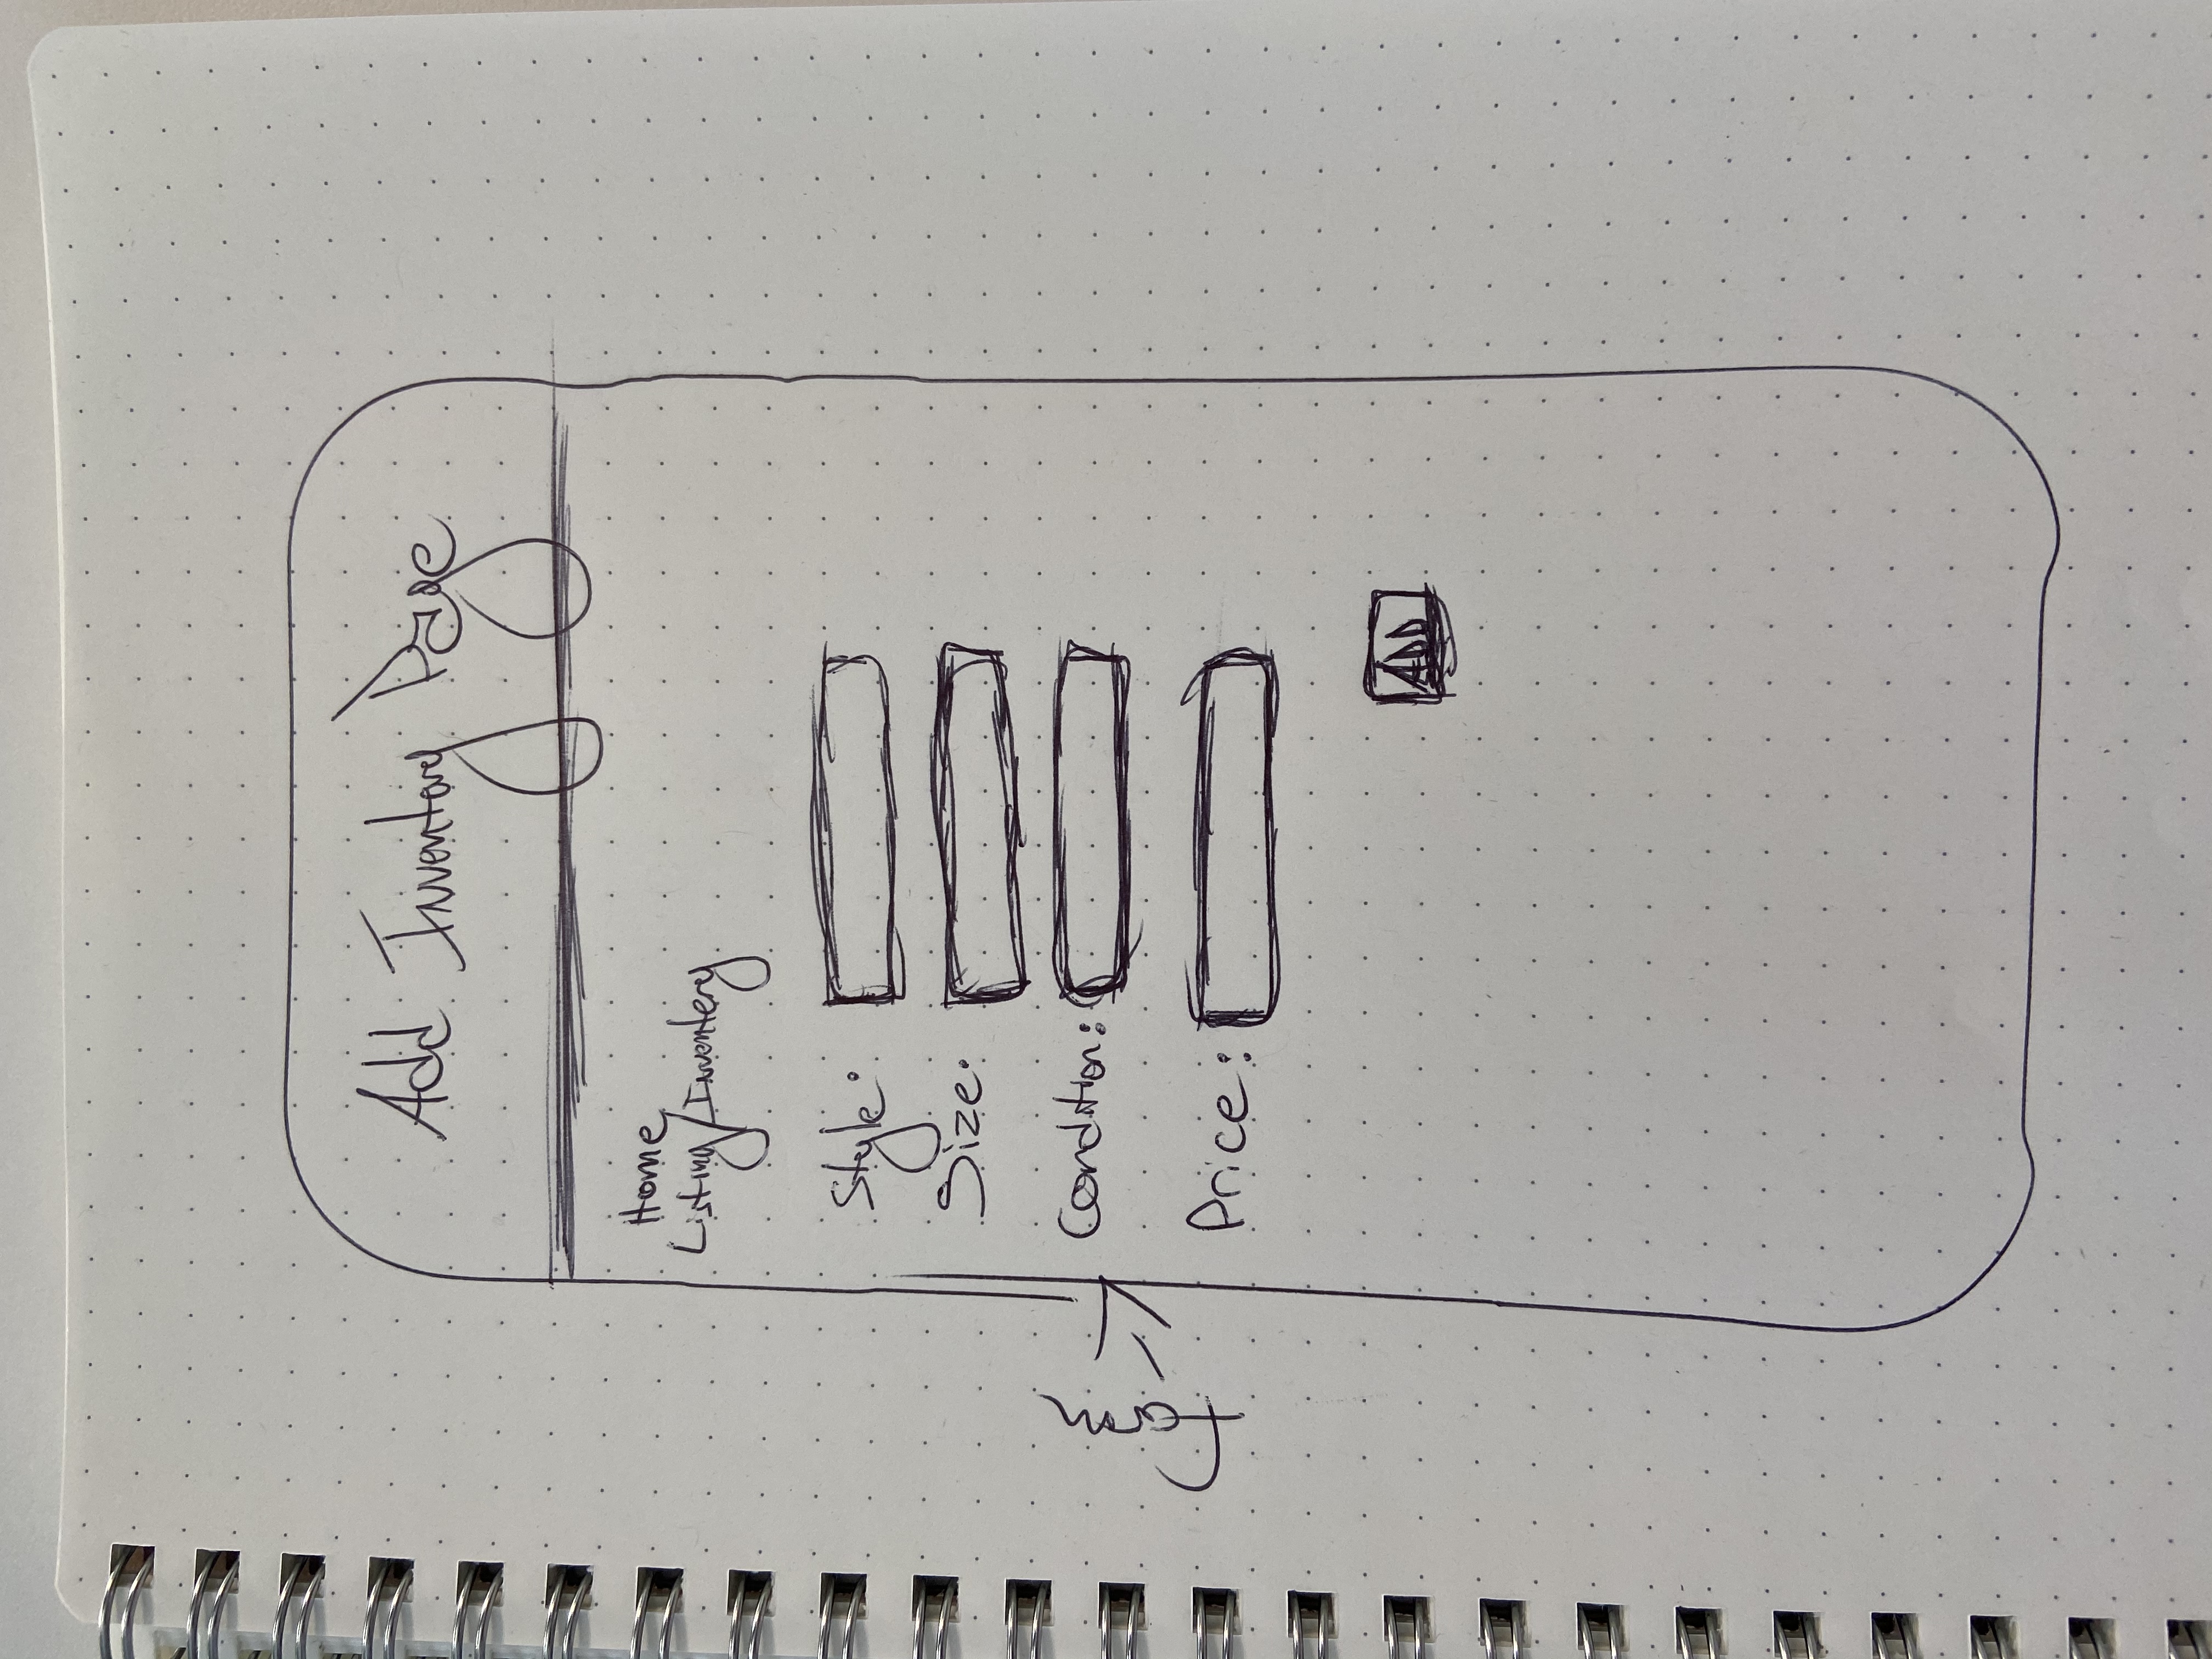 Add Inventory Page
Home
Listing/Inventery
Style:
Size:
Condition:
Price:
ADD